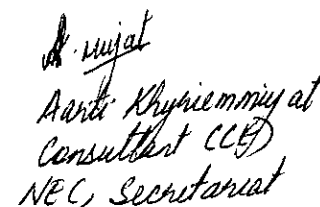 Aarti Khyriemmiyat
Consultant (CCF)
NEC, Secretariat